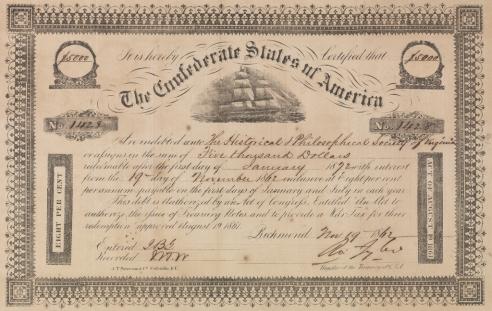 $5000 It is hereby Certified that $5000
The Confederate States of America
No. 1423 No. 1423
Are indebted unto The Historical & Philosophical Society of Virginia
or assigns in the sum of Five thousand Dollars
redeemable after the first day of January 1872 with interest
from the 19th day of November 1862 inclusive at Eight per cent
per annum payable on the first days of January and July in each year
This debt is authorized by an Act of Congress Entitled "An Act to
authorize the issue of Treasury Notes and to provide a War Tax for their
redemption approved August 19, 1861.
EIGHT PER CENT
ACT OF AUGUST 19 1861
Richmond, Nov 19 1862
Entered
Recorded
Register of the Treasury C.S.A.